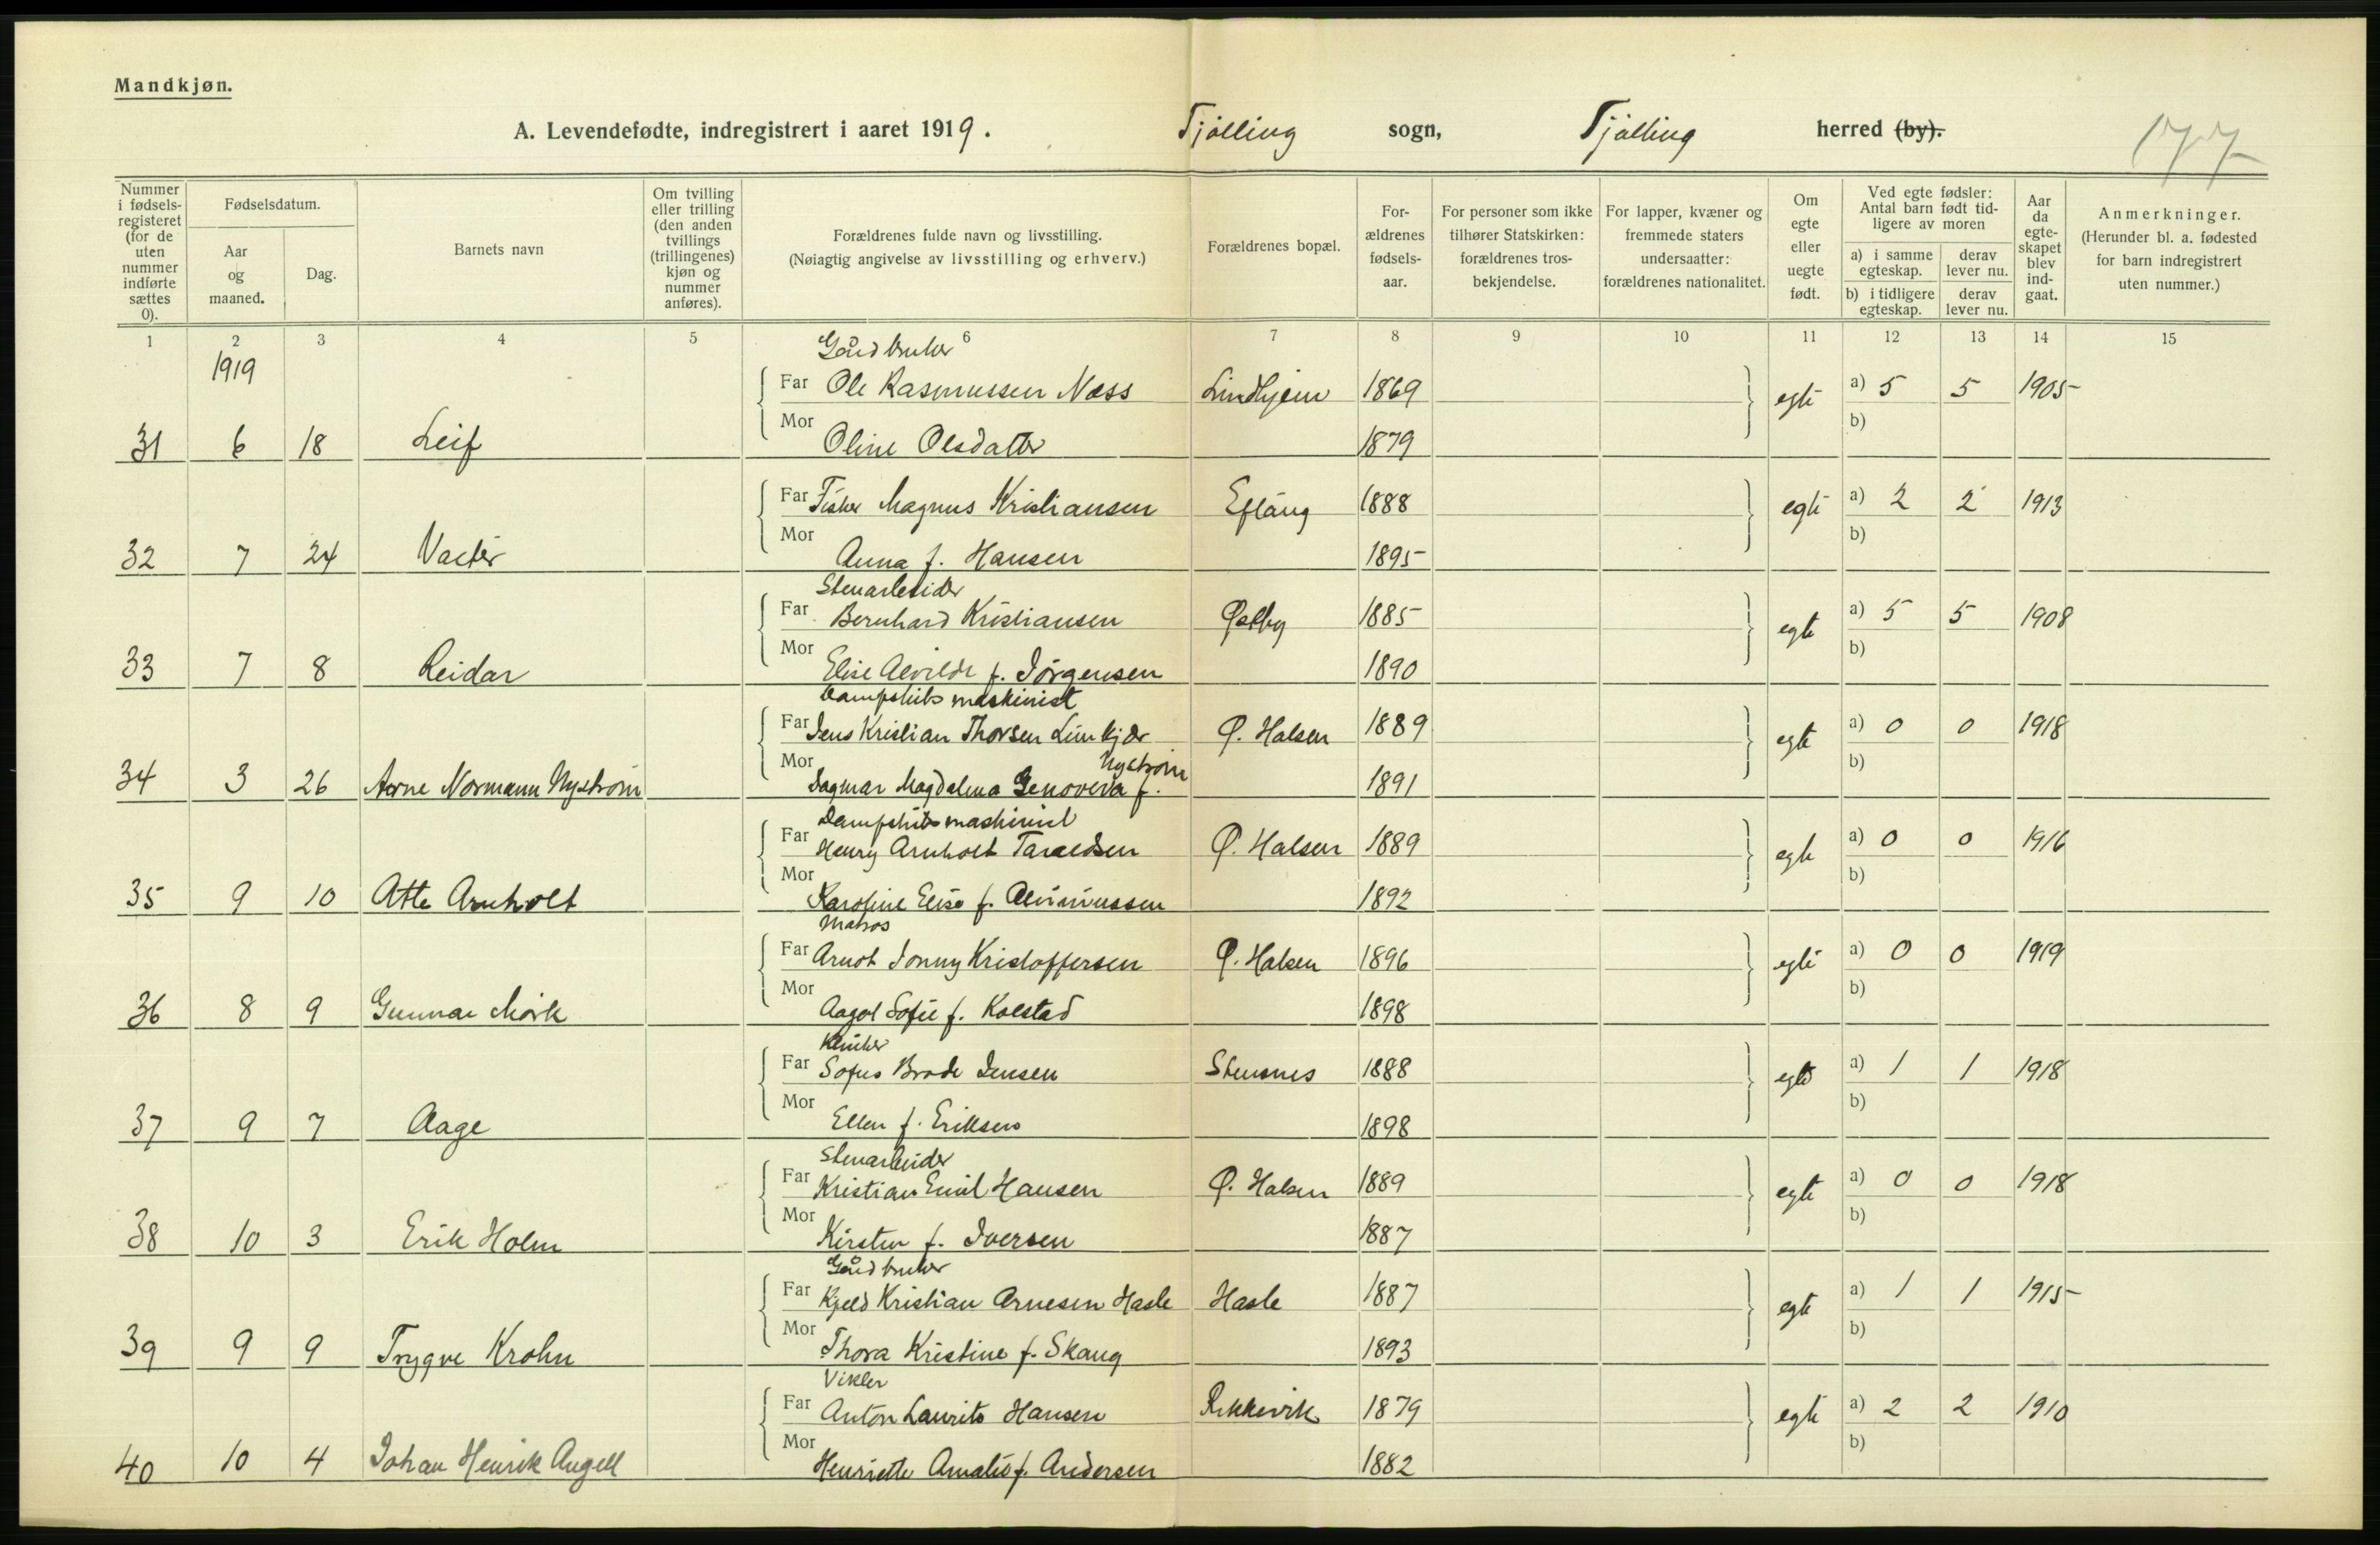 Mandkjøn.
A. Levendefødte, indregistrert i aaret 1919. Tjølling sogn, Tjølling herred (by). 177
Nummer i fødsels-registeret (for de uten nummer indførte sættes 0).
Fødselsdatum.
Aar og maaned.
Dag.
Barnets navn
Om tvilling eller trilling (den anden tvillings (trillingenes) kjøn og nummer anføres).
Forældrenes fulde navn og livsstilling.
(Nøiagtig angivelse av livsstilling og erhverv.)
Forældrenes bopæl.
For-ældrenes fødsels-aar.
For personer som ikke tilhører Statskirken: forældrenes tros-bekjendelse.
For lapper, kvæner og fremmede staters undersaatter: forældrenes nationalitet.
Om egte eller uegte født.
Ved egte fødsler: Antal barn født tid-ligere av moren
a) i samme egteskap.
derav lever nu.
b) i tidligere egteskap.
derav lever nu.
Aar da egte-skapet blev ind-gaat.
Anmerkninger.
(Herunder bl. a. fødested for barn indregistrert uten nummer.)
1 2 3 4 5 6 7 8 9 10 11 12 13 14 15
1919
Gårdbruker
Far Ole Rasmussen Næss Lindhjem 1869 egte a) 5 5 1905
31 6 18 Leif Mor Oline Olsdatter 1879 b)
Far Fisker Magnus Kristiansen Eftang 1888 egte a) 2 2 1913
32 7 24 Mor Anna f. Hansen 1895 b)
Stenarbeider
Far Bernhard Kristiansen Østby 1885 egte a) 5 5 1908
33 7 8 Reidar Mor Elise Alvilde f. Jørgensen 1890 b)
Dampskibsmaskinist
Far Jens Kristian Thorsen Limkjær Ø. Halsen 1889 egte a) 0 0 1918
34 3 26 Arne Normann Nystrøm Mor Dagmar Magdalena Genoveva f. Nystrøm 1891 b)
Dampskibsmaskinist
Far Henry Arnholt Taraldsen Ø. Halsen 1889 egte a) 0 0 1916
35 9 10 Atte Arnholt Mor Karoline Elise f. 1892 b)
Matros
Far Arnot Jonny Kristoffersen Ø. Halsen 1896 egte a) 0 0 1919
36 8 9 Gunnar Mørk Mor Aagot Sofie f. Kolstad 1898 b)
Far Sofus Brode Jensen Stensnes 1888 egte a) 1 1 1918
37 9 7 Aage Mor Ellen f. Eriksen 1898 b)
Stenarbeider
Far Kristian Emil Hansen Ø. Halsen 1889 egte a) 0 0 1918
38 10 3 Erik Holm Mor Kirsten f. Iversen 1887 b)
Gårdbruker
Far Kjeld Kristian Arnesen Hasle Hasle 1887 egte a) 1 1 1915
39 9 9 Trygve Krohn Mor Thora Kristine f. Skaug 1893 b)
Vikler
Far Anton Laurits Hansen Rekkevik 1879 egte a) 2 2 1910
40 10 4 Johan Henrik Angell Mor Henriette Amalie f. Andersen 1882 b)